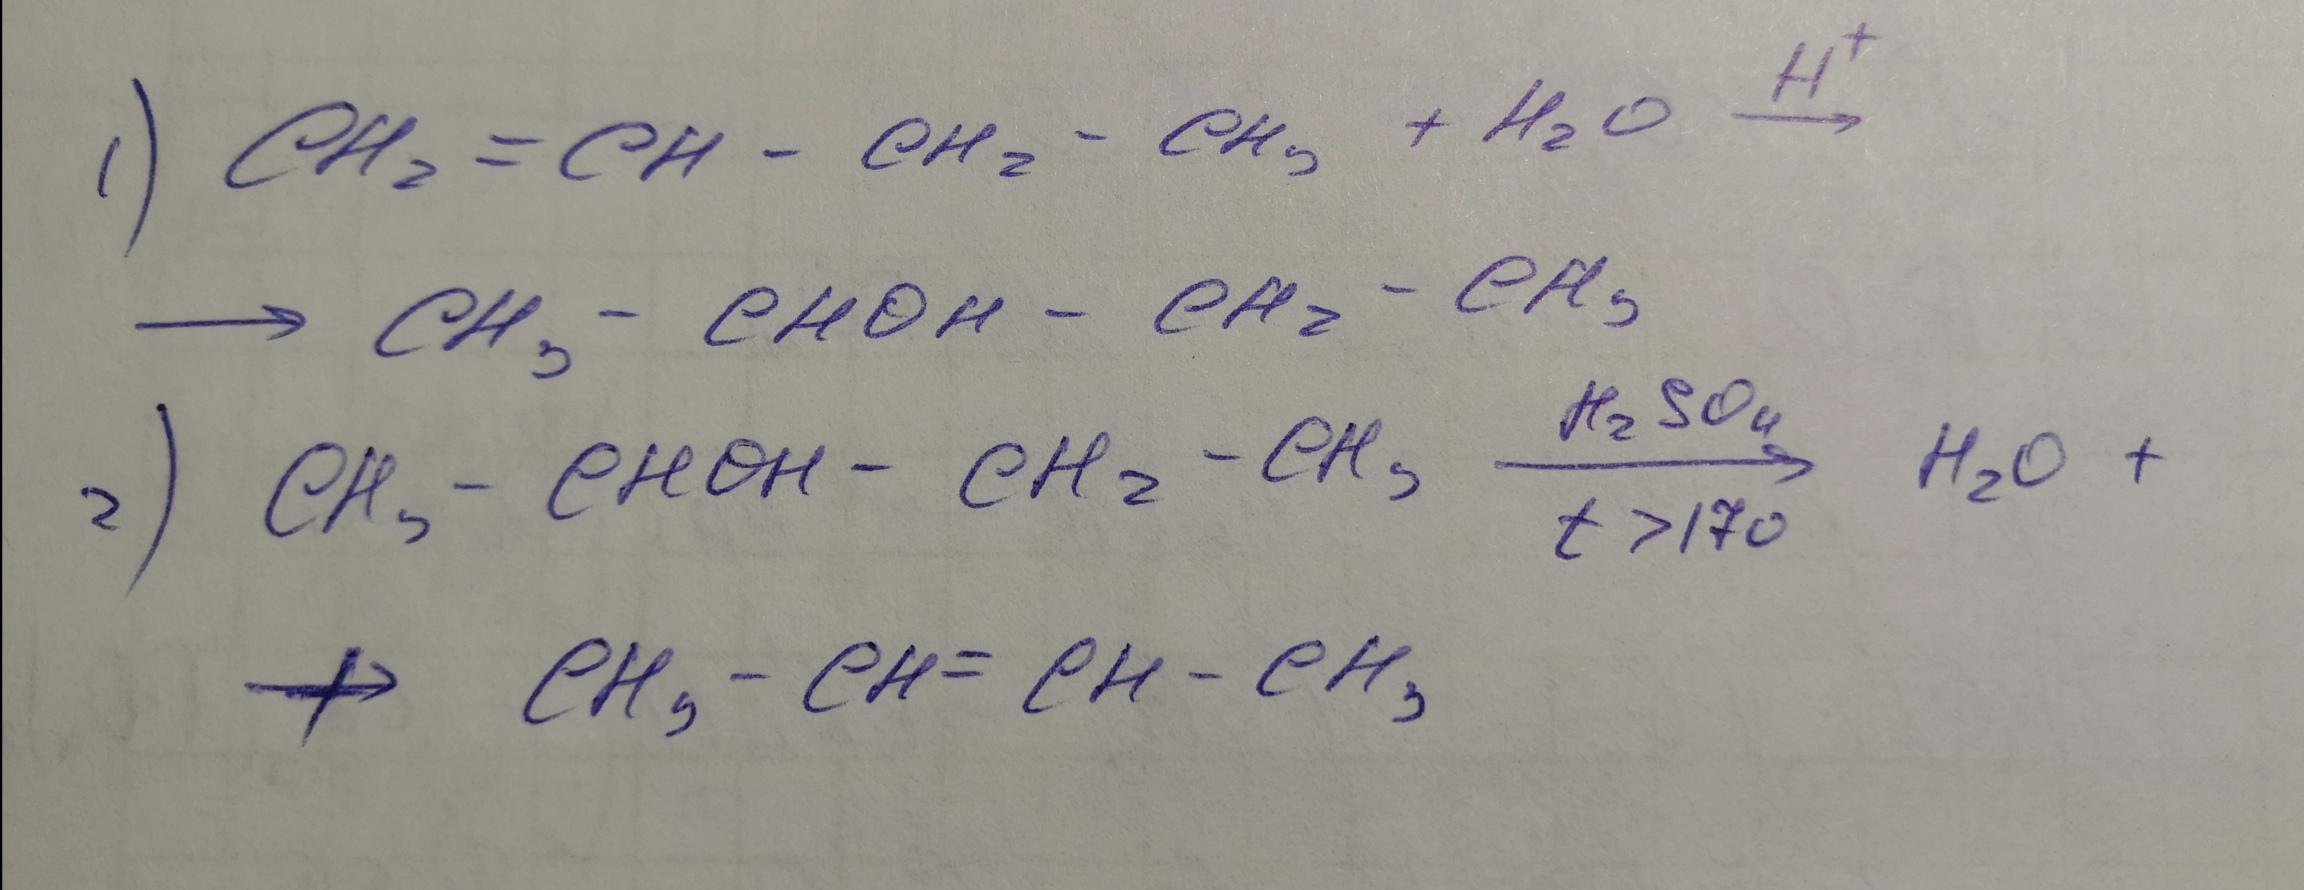 1) CH₂ = CH - CH₂ - CH₃ + H₂O —H⁺→
→ CH₃ - CHOH - CH₂ - CH₃
2) CH₃ - CHOH - CH₂ - CH₃ —H₂SO₄, t > 170→ H₂O +
+ CH₃ - CH = CH - CH₃